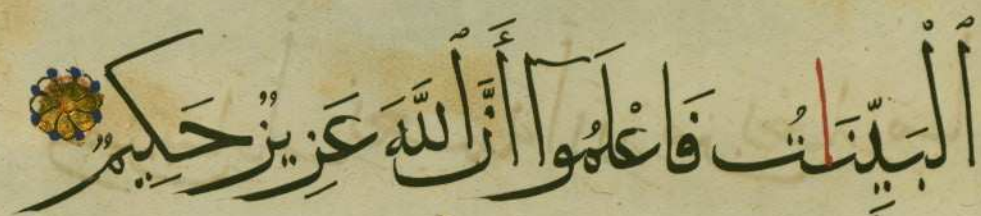 ٱلْبَيِّنَاتُ فَاعْلَمُوٓا أَنَّ ٱللَّهَ عَزِيزٌ حَكِيمٌ